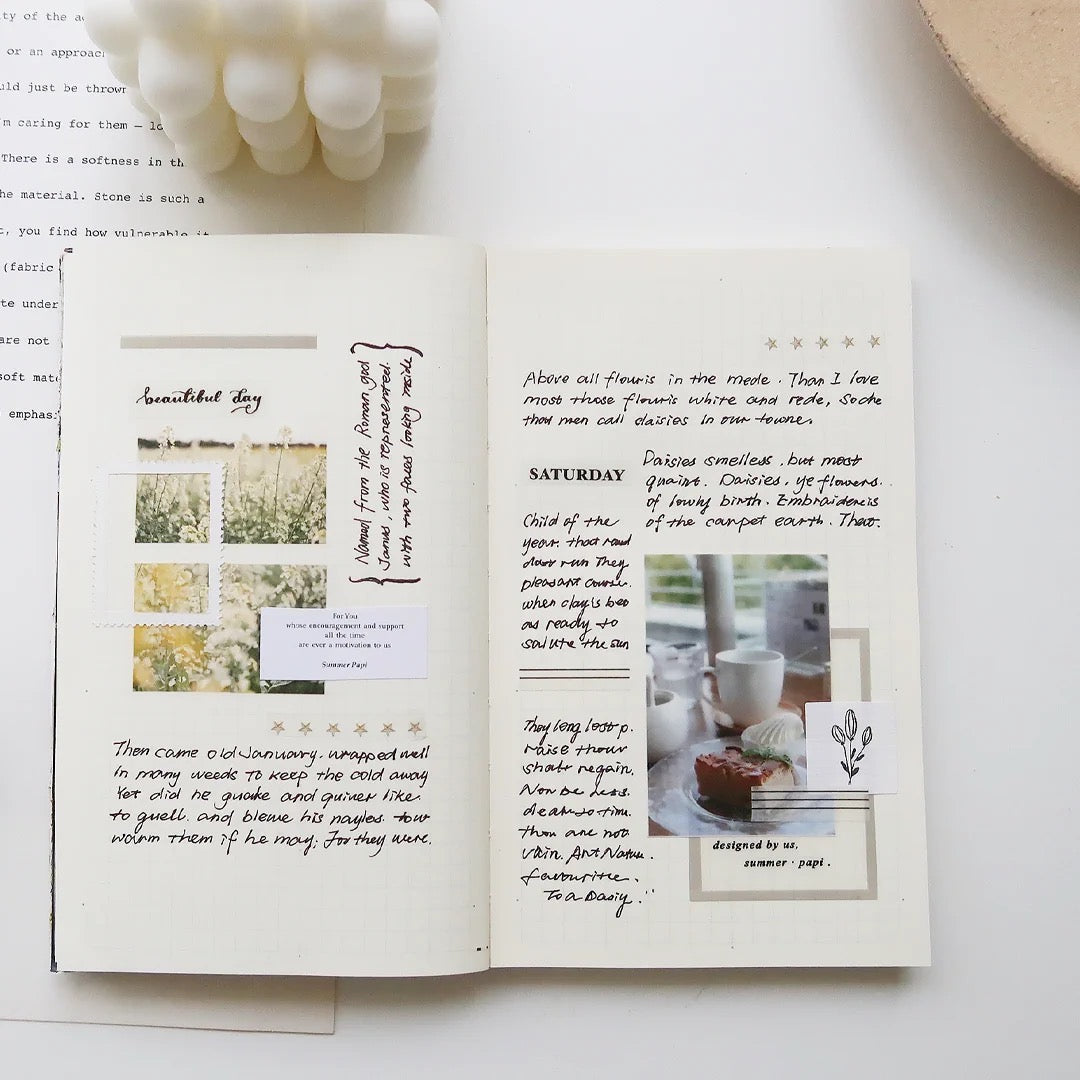 ty of the a
or an approac
uld just be thrown
'm caring for them — lo
There is a softness in th
he material. Stone is such a
t, you find how vulnerable it
(fabric
te under
are not
soft mat
emphas
beautiful day
{Named from the Roman god
Janus, who is represented.
with two faces looking inside}
For You
whose encouragement and support
all the time
are ever a motivation to us
Summer Papi
Then came old January. wrapped well
In many weeds To keep the cold away
Yet did he quake and quiver like.
to quell. and blewe his nayles
warm them if he may; For they were.
Above all flouris in the mede. Than I love
most those flouris white and rede, Soche
that men call daisies In our towne.
SATURDAY
Daisies smelless, but most
quaint. Daisies, ye flowers.
of lowly birth. Embroiderers
of the carpet earth. That.
Child of the
year. that round
dour run They
pleasant course.
when day's beg
as ready to
salute the sun
They long lost p.
raise thour
shalt regain.
Nor be less.
dear to time.
than are not
vain. Art Nature.
favourite.
To a Daisy."
designed by us,
summer · papi .